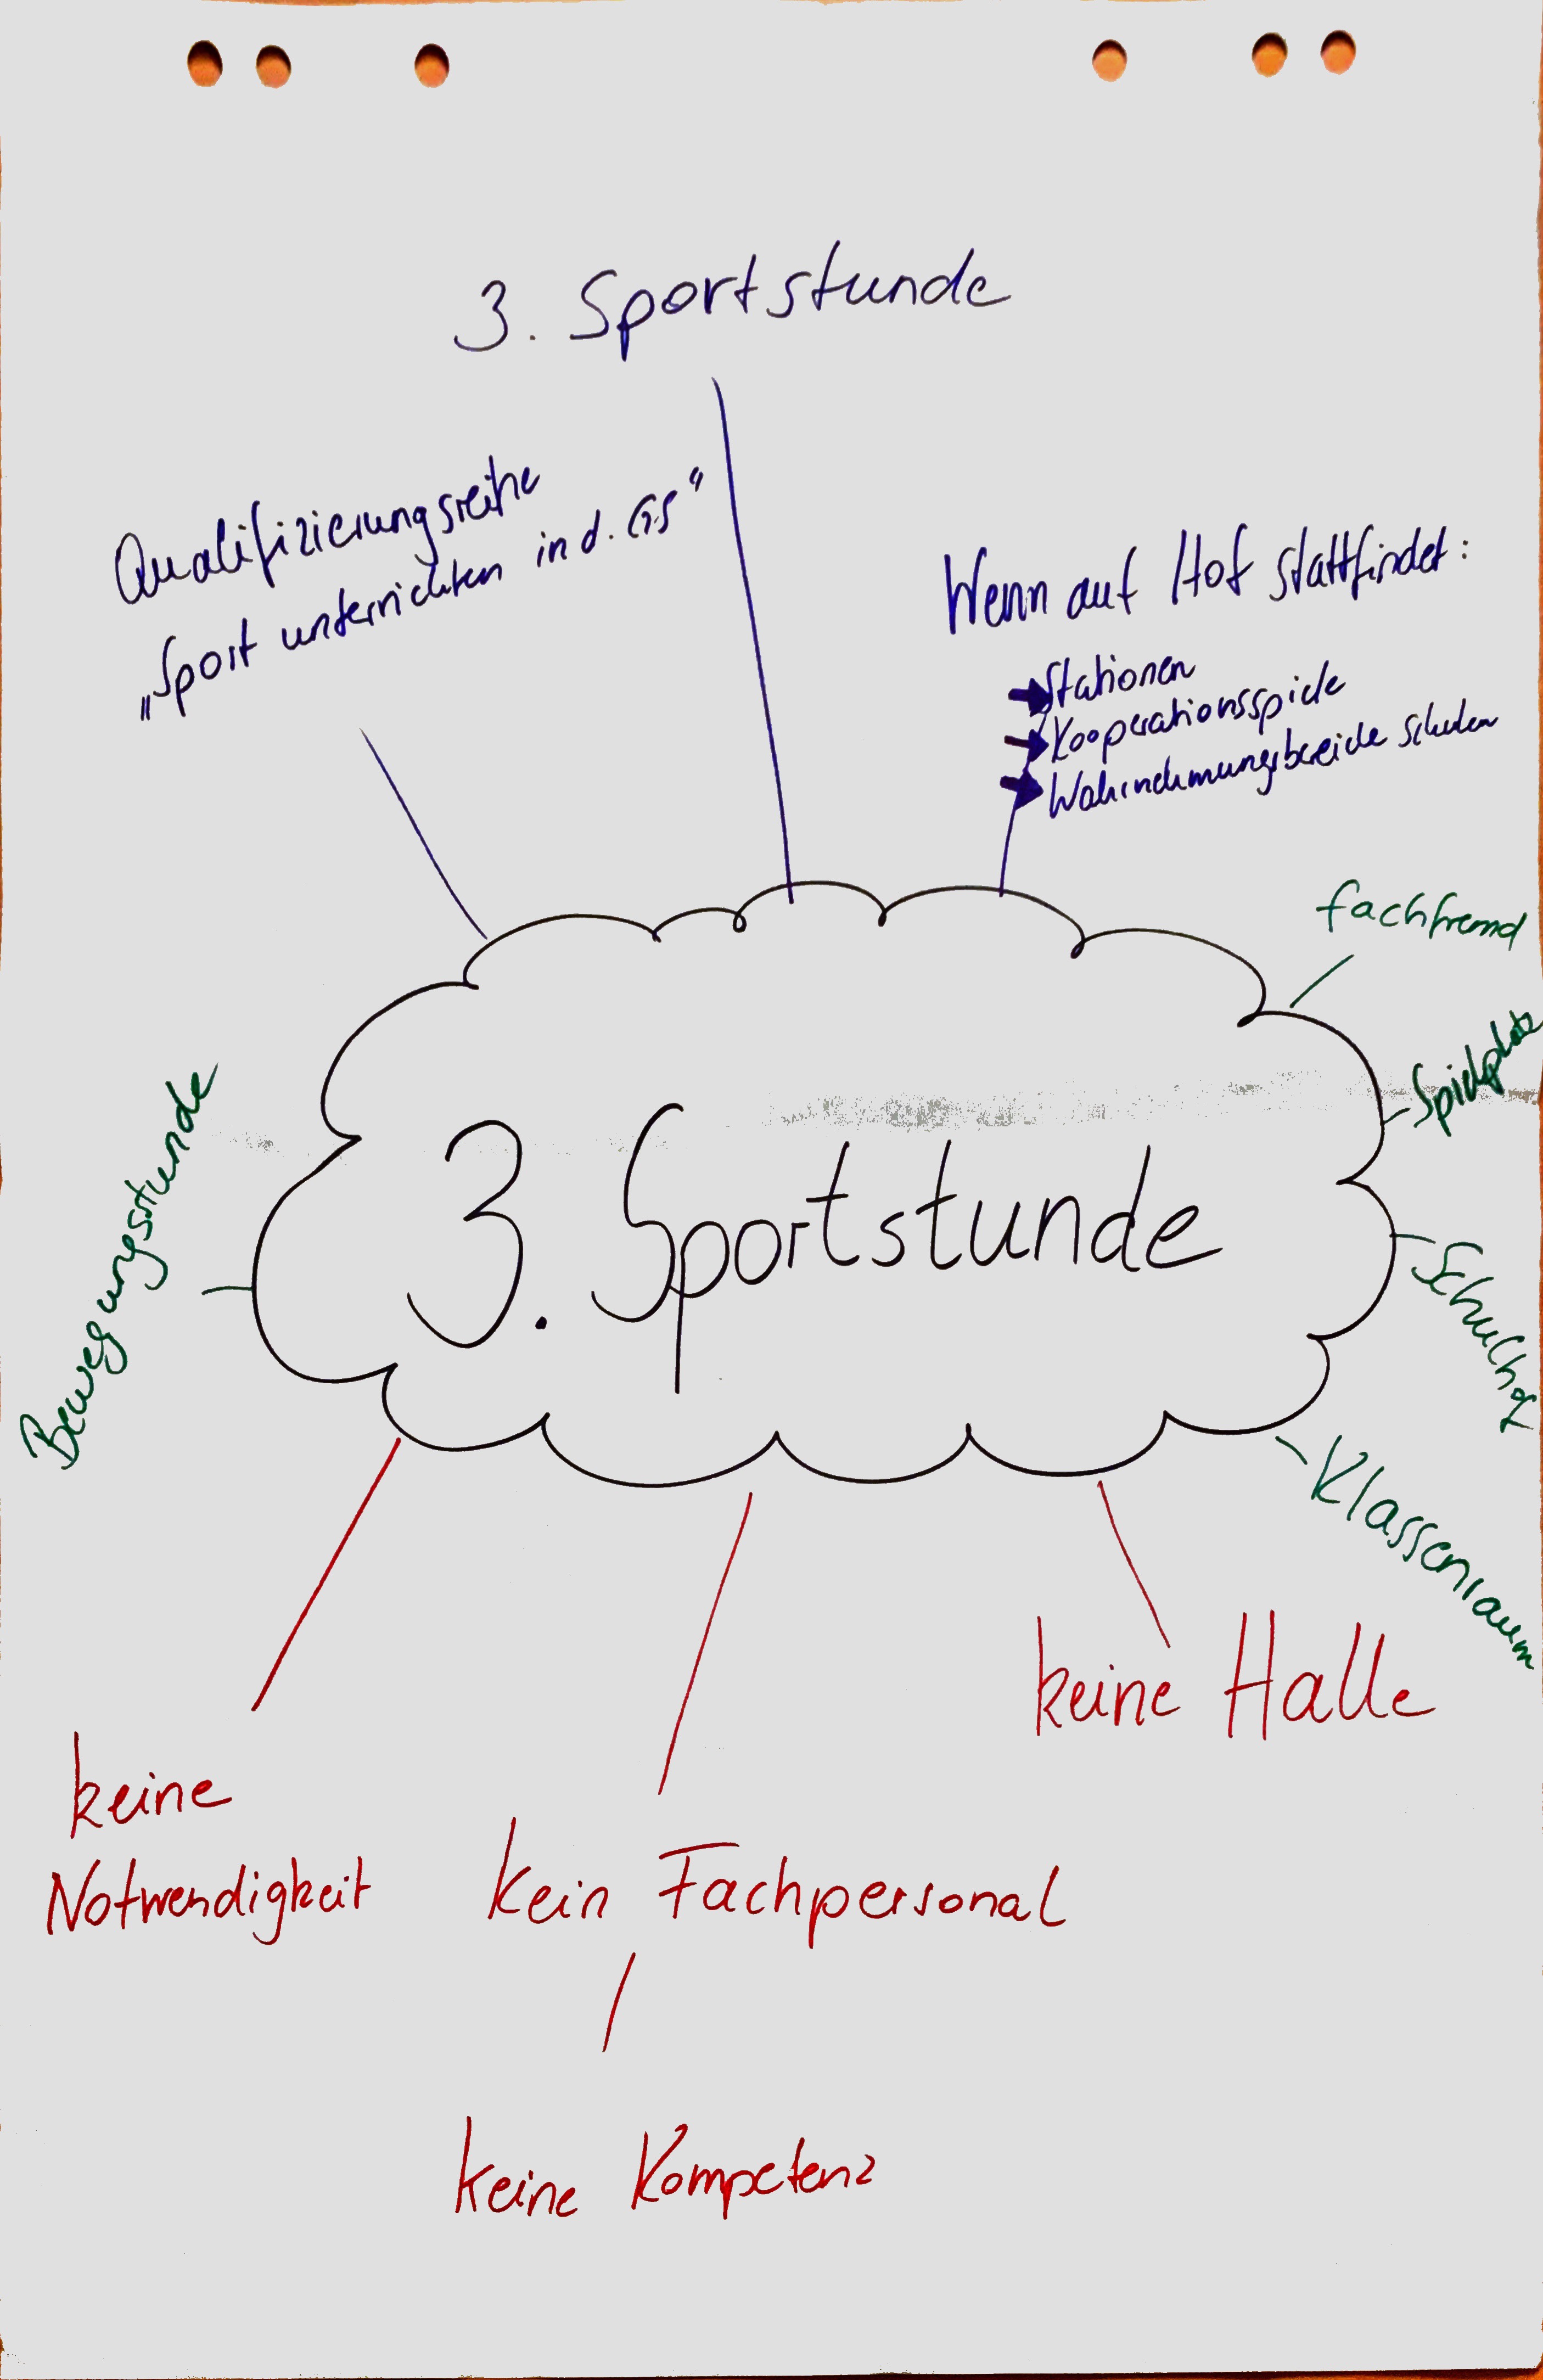 3. Sportstunde
Qualifizierungsreihe
„Sport unterrichten in d. GS"
Wenn auf Hof stattfindet:
Stationen
Kooperationsspiele
Wahrnehmungsbereiche schulen
fachfremd
Spielplatz
Bewegungsstunde
3. Sportstunde
Schulhof
Klassenraum
keine Halle
keine
Notwendigkeit
kein Fachpersonal
keine Kompetenz